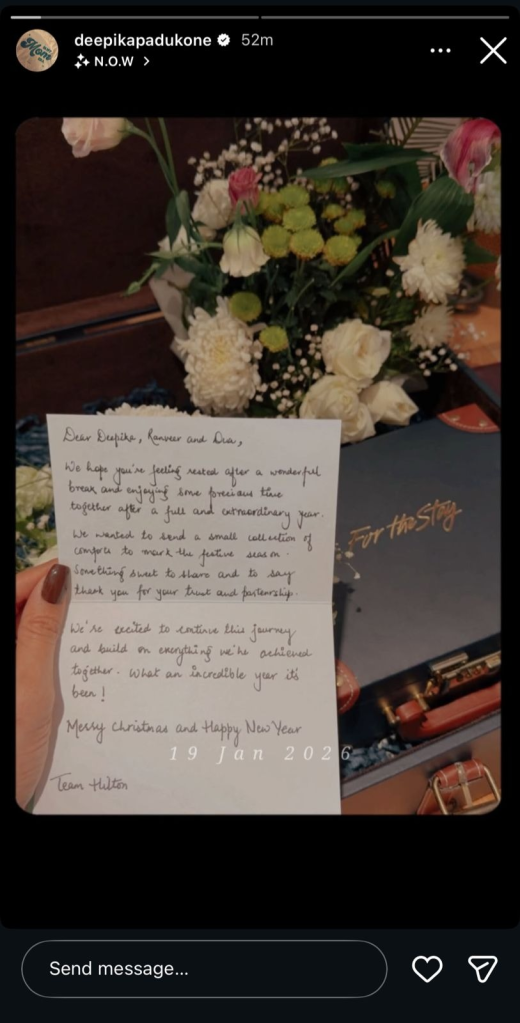 deepikapadukone 52m
N.O.W
Mom
Dear Deepika, Ranveer and Dua,
We hope you're feeling rested after a wonderful
break and enjoying some precious time
together after a full and extraordinary year.
We wanted to send a small collection of
comforts to mark the festive season.
Something sweet to share and to say
thank you for your trust and partnership.
We're excited to continue this journey
and build on everything we've achieved
together. What an incredible year it's
been!
Merry Christmas and Happy New Year
Team Hilton
For the Stay
19 Jan 2026
Send message...